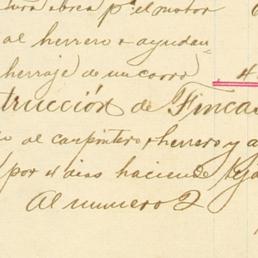 obra pª el motor
al herrero y ayudan
herraje de un carro 4
trucción de Finca
al carpintero y herrero y a
por 4 dias haciendo teja
Al numero 2